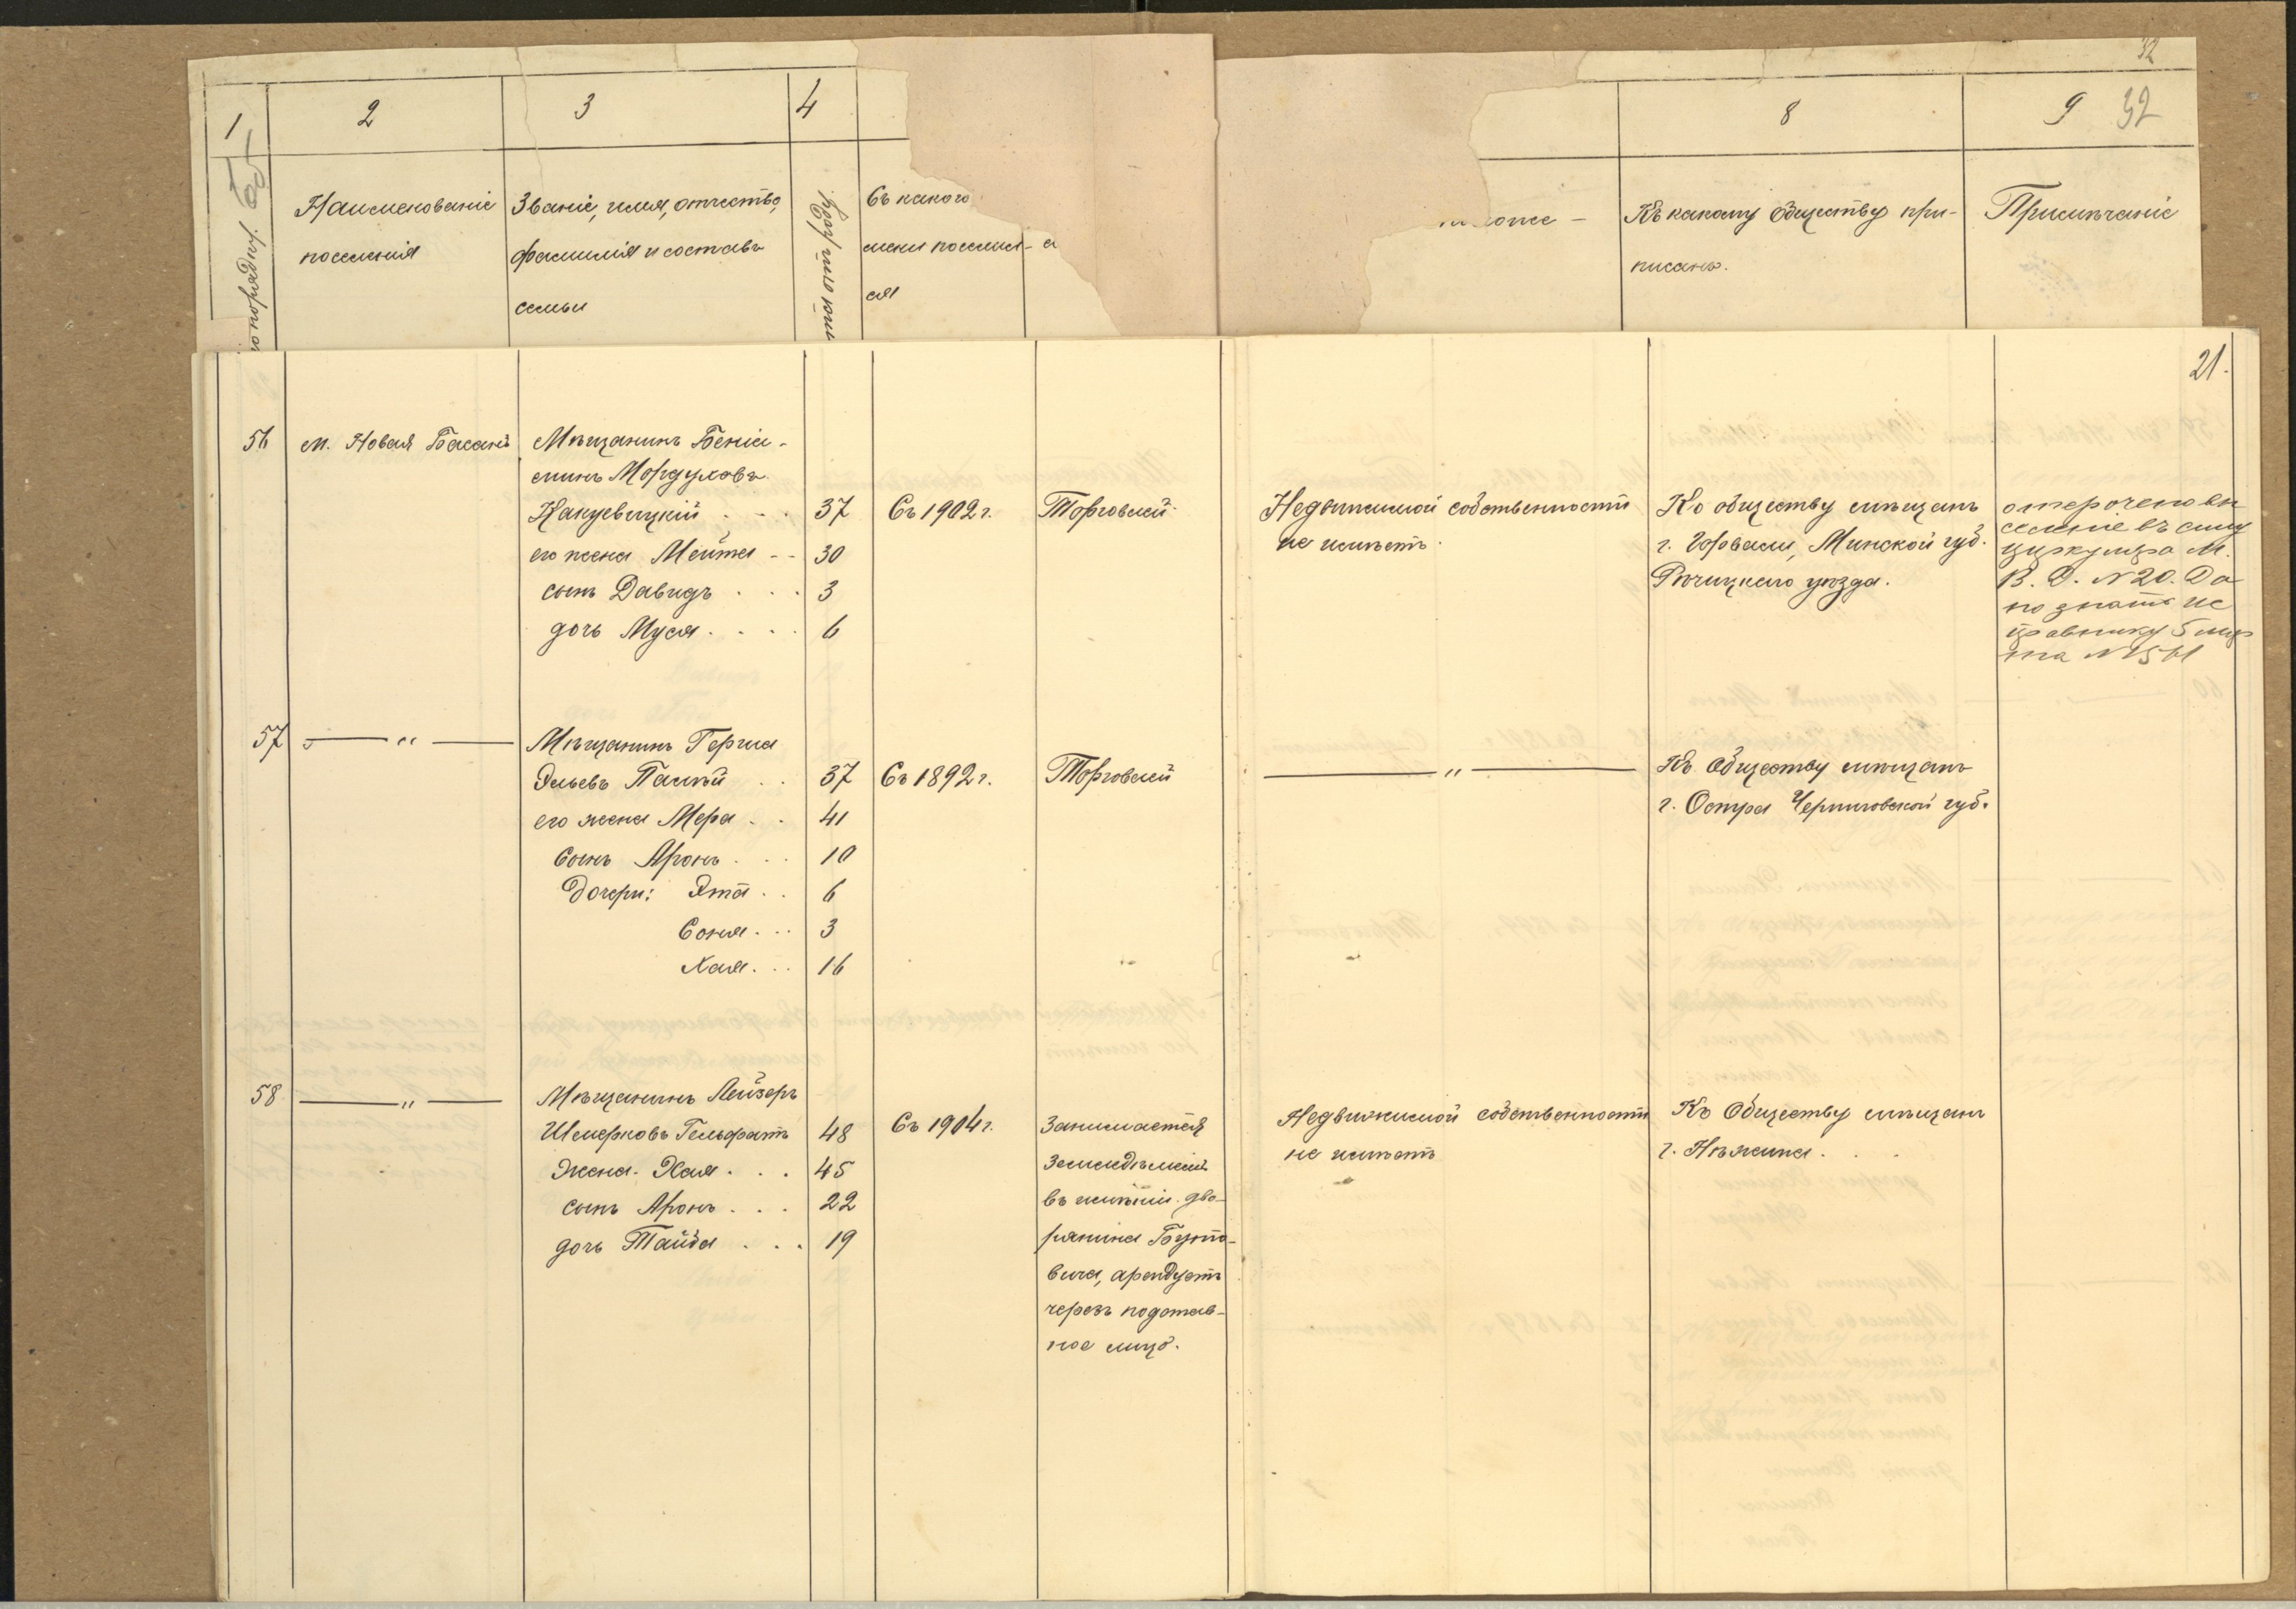 32
1
2
3
4
8
9 32
по порядку.
Наименованіе
поселенія
Званіе, имя, отчество,
фамилія и составъ
семьи
Съ какого
мени поселил-
ся
Къ какому обществу при-
писанъ.
Примѣчаніе
21.
56
м. Новая Басань
Мѣщанинъ Беніа-
минъ Мордуховъ
Кацевицкій 37
его жена Мейта 30
сынъ Давидъ 3
дочь Муся 6
Съ 1902 г.
Торговлей
Недвижимой собственности
не имѣетъ.
Ко обществу мѣщанъ
г. Горваля, Минской губ.
Рѣчицкаго уѣзда.
отсрочено вы
селеніе въ силу
циркуляра М.
В. Д. № 20. Да
но знать ис
правнику 5 мар
та №
57 — " —
Мѣщанинъ Герша
Эльевъ Палѣй 37
его жена Мера 41
Сынъ Аронъ 10
Дочери: Эта 6
Соня 3
Хая 16
Съ 1892 г.
Торговлей
— " —
Къ Обществу мѣщанъ
г. Остра Черниговской губ.
58 — " —
Мѣщанинъ Лейзеръ
Шмерковъ Гельфатъ 48
Жена Хая 45
сынъ Аронъ 22
дочь Тайба 19
Съ 1904 г.
Занимается
земледѣліемъ
въ имѣніи дво-
рянина Буто-
вича, арендуетъ
черезъ подстав-
ное лицо.
Недвижимой собственности
не имѣетъ
Къ Обществу мѣщанъ
г. Нѣжина.